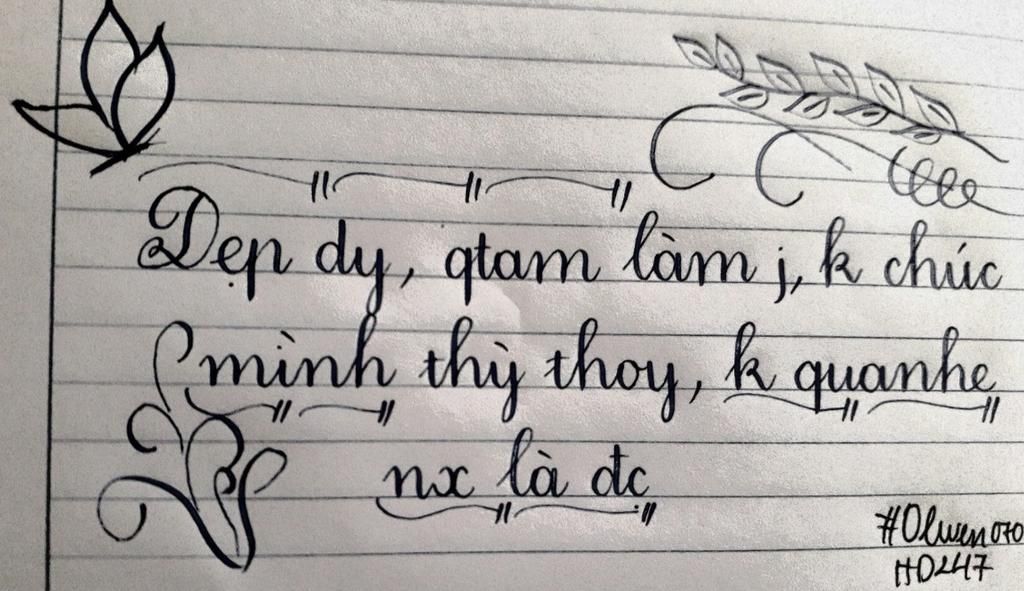 Dẹp dy, qtam làm j, k chúc
mình thỳ thoy, k quanhe
nx là đc
#Olwen070
HD247